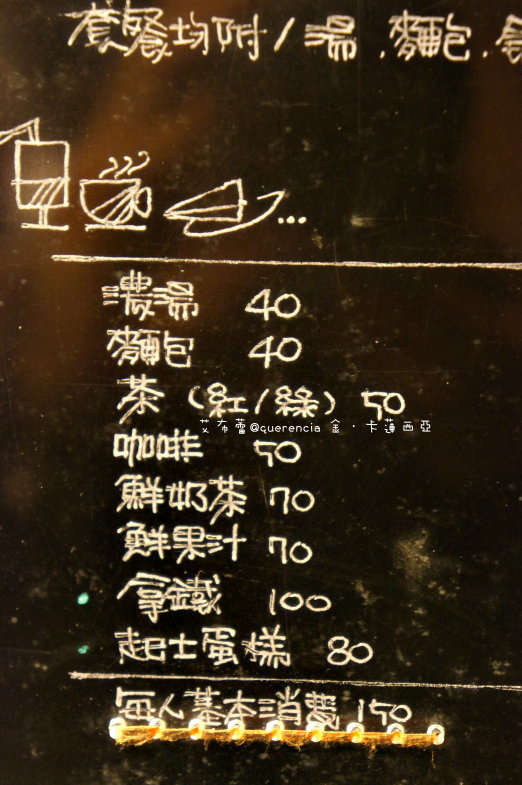 套餐均附/湯.麵包.
...
濃湯 40
麵包 40
茶(紅/綠) 50
艾布蕾@querencia 金·卡蓮西亞
咖啡 50
鮮奶茶 70
鮮果汁 70
拿鐵 100
起士蛋糕 80
每人基本消費 150